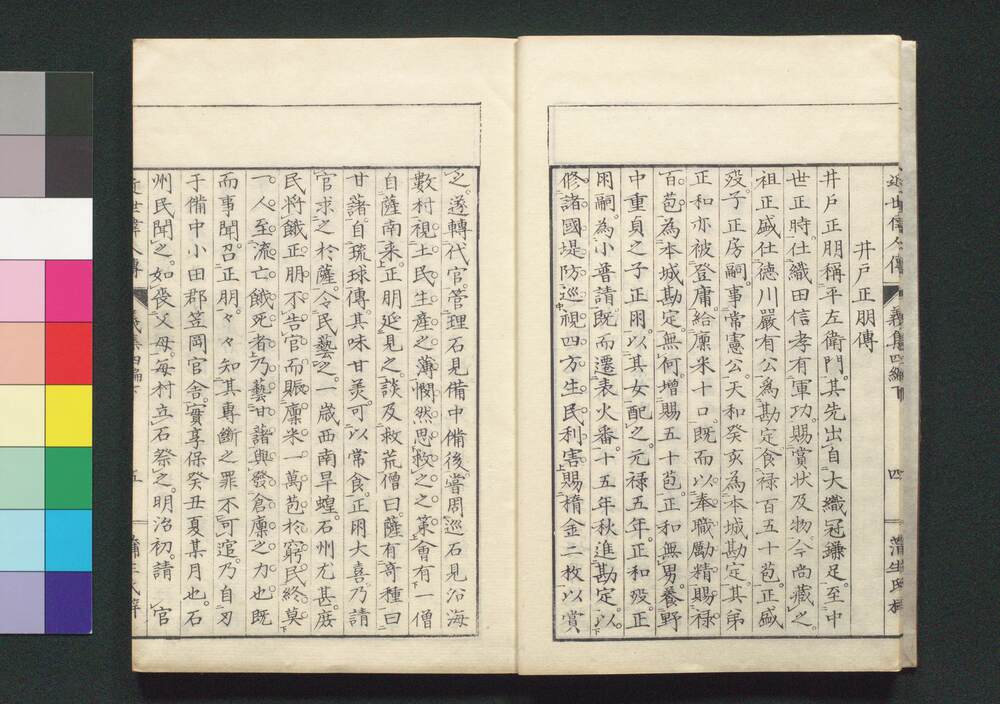 近世偉人傳 義集四編下 四 蒲生氏梓
井戸正朋傳
井戸正朋稱平左衛門。其先出自大織冠鎌足。至中
世正時。仕織田信孝有軍功。賜賞状及物。今尚藏之。
祖正盛仕德川嚴有公爲勘定。食祿百五十苞。正盛
歿。子正房嗣。事常憲公。天和癸亥為本城勘定。其弟
正和亦被登庸。給廩米十口。既而以奉職勵精。賜祿
百苞。為本城勘定。無何。增賜五十苞。正和無男。養野
中重貞之子正朋。以其女配之。元祿五年。正和歿。正
朋嗣。為小普請。既而遷表火番。十五年秋進勘定。以
修諸國堤防巡視四方生民利害。賜楕金二枚以賞
之。遂轉代官。管理石見備中備後。嘗周巡石見沿海
數村。視土民生產之薄。憫然思救之之策。會有一僧
自薩南来。正朋延見之。談及救荒。僧曰。薩有奇種。曰
甘藷。自琉球傳。其味甘美。可以常食。正朋大喜。乃請
官求之於薩。令民藝之。一歲西南旱蝗。石州尤甚。庶
民將餓。正朋不告官而賑廩米一萬苞於窮民。終莫
一人至流亡餓死者。乃藝甘藷與發倉廩之力也。既
而事聞。召正朋。々々知其專斷之罪不可逭。乃自刃
于備中小田郡笠岡官舎。實享保癸丑夏某月也。石
州民聞之。如喪父母。每村立石祭之。明治初。請 官
近世偉人傳 義集四編下 五 蒲生氏梓